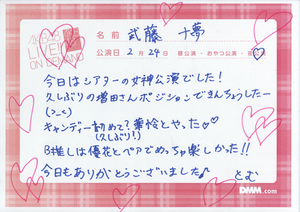 AKB48 LIVE!! ON DEMAND
名前 武藤 十夢
公演日 2月24日 昼公演・おやつ公演・夜
今日はシアターの女神公演でした！
久しぶりの増田さんポジションできんちょうしたー
(>~<)
キャンディー初めて？華怜とやった♡♡
(久しぶり！)
B推しは優花とペアでめっちゃ楽しかった!!
今日もありがとうございました♪
とむ
DMM.com